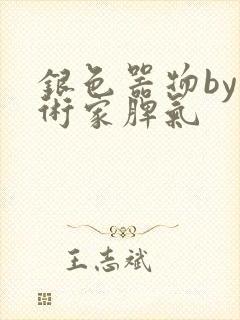 銀色器物by
術家脾氣
王志斌